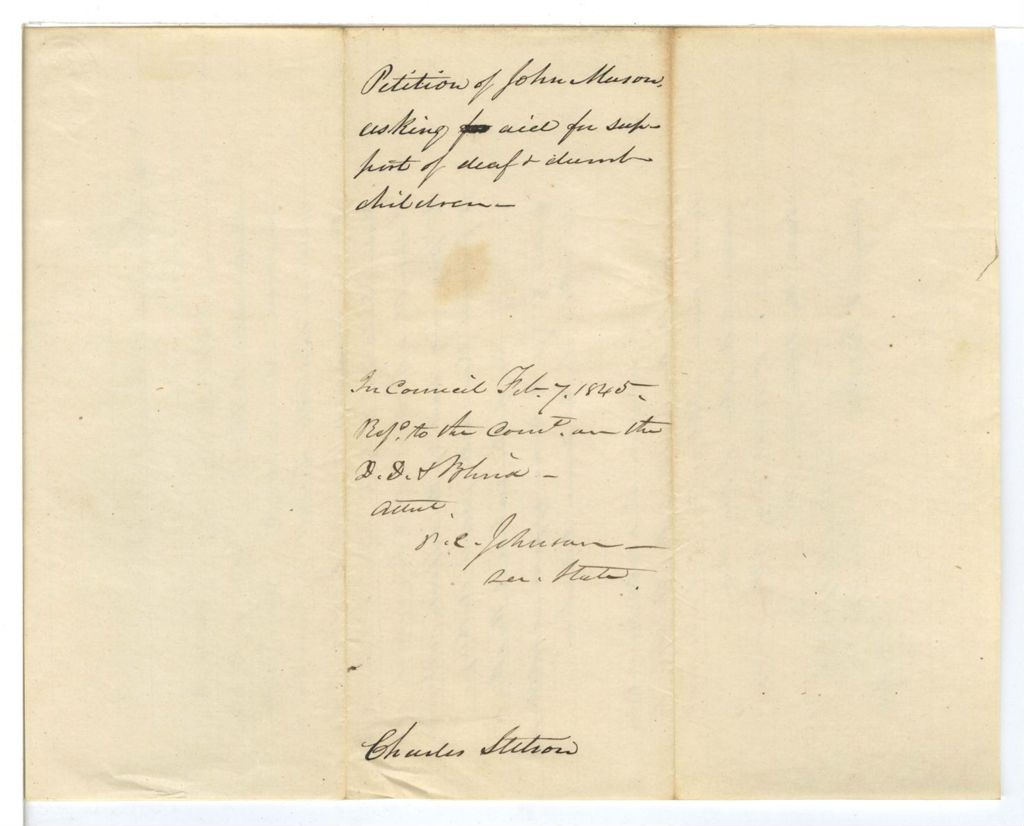 Petition of John Mason,
asking aid for sup-
port of deaf & dumb
children—
In Council Feb. 7, 1845—
Refd. to the Comt. on the
D. D. & Blind —
Attest,
P. C. Johnson —
Sec. State.
Charles Stetson